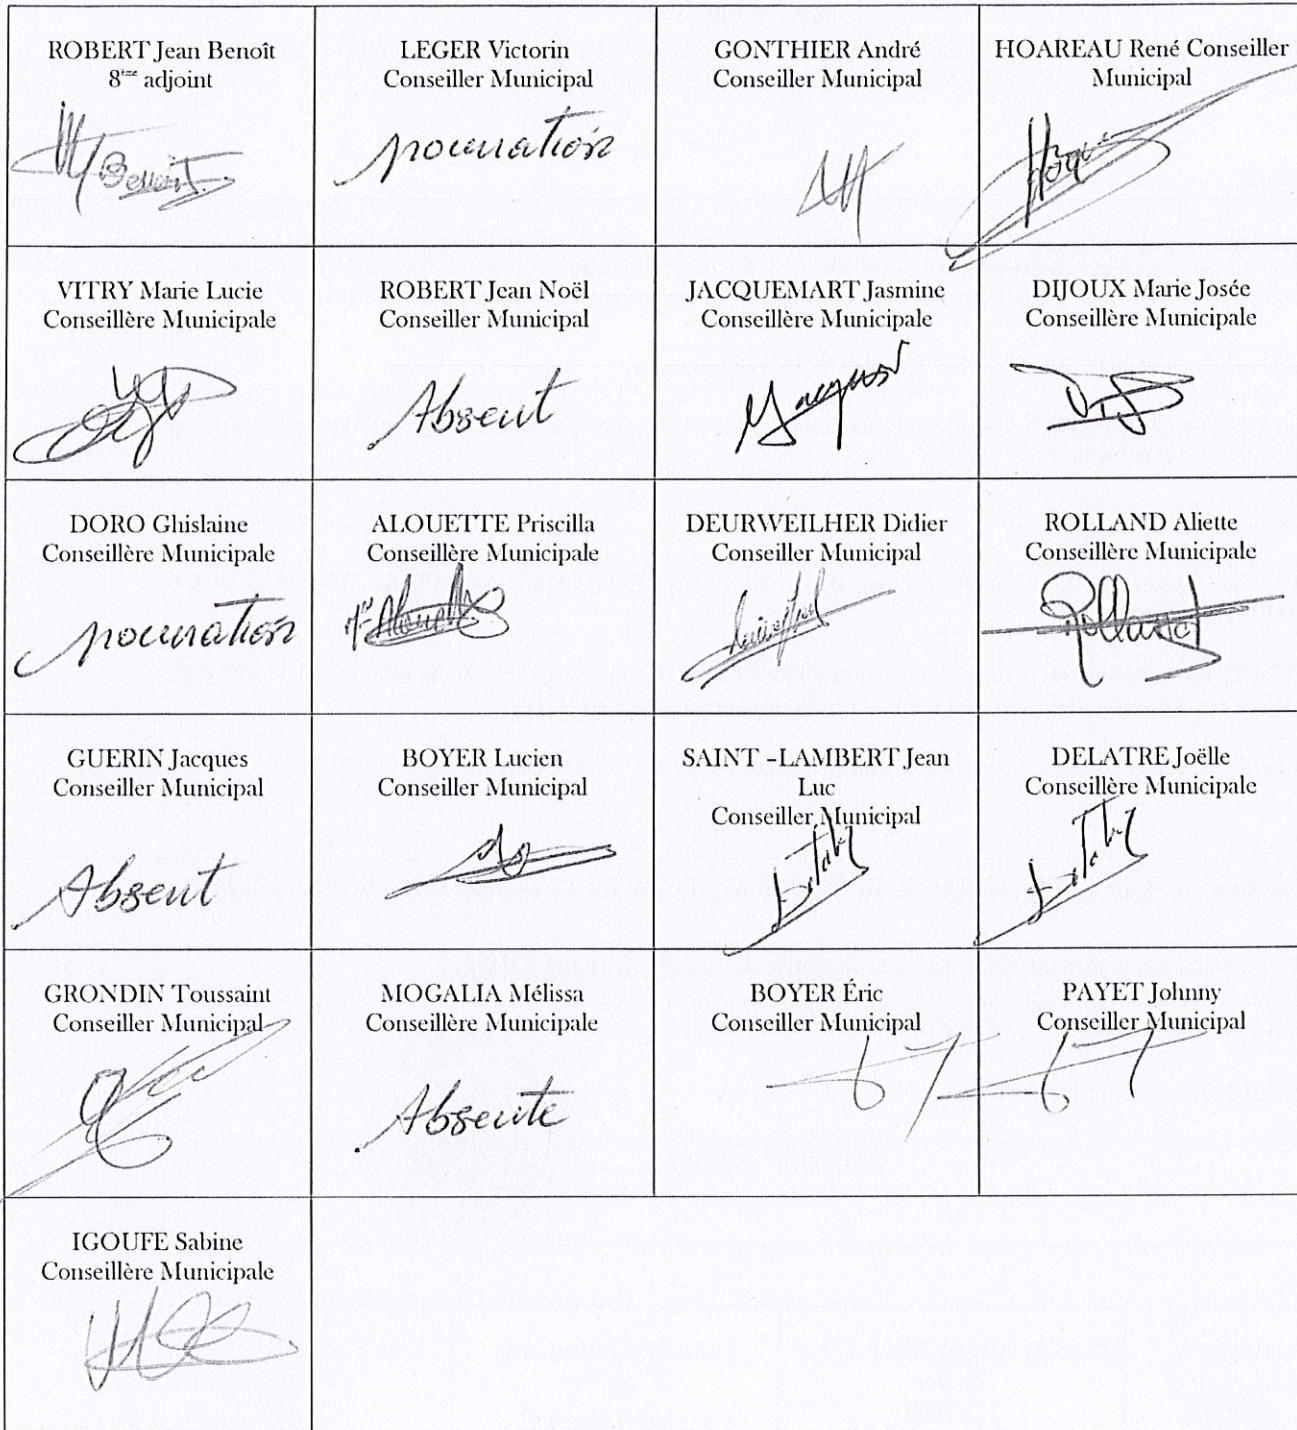 ROBERT Jean Benoît
8ème adjoint
Benoit
LEGER Victorin
Conseiller Municipal
procuration
GONTHIER André
Conseiller Municipal
HOAREAU René Conseiller
Municipal
VITRY Marie Lucie
Conseillère Municipale
ROBERT Jean Noël
Conseiller Municipal
Absent
JACQUEMART Jasmine
Conseillère Municipale
DIJOUX Marie Josée
Conseillère Municipale
DORO Ghislaine
Conseillère Municipale
procuration
ALOUETTE Priscilla
Conseillère Municipale
DEURWEILHER Didier
Conseiller Municipal
ROLLAND Aliette
Conseillère Municipale
Rolland
GUERIN Jacques
Conseiller Municipal
Absent
BOYER Lucien
Conseiller Municipal
SAINT –LAMBERT Jean
Luc
Conseiller Municipal
DELATRE Joëlle
Conseillère Municipale
GRONDIN Toussaint
Conseiller Municipal
MOGALIA Mélissa
Conseillère Municipale
Absente
BOYER Éric
Conseiller Municipal
PAYET Johnny
Conseiller Municipal
IGOUFE Sabine
Conseillère Municipale